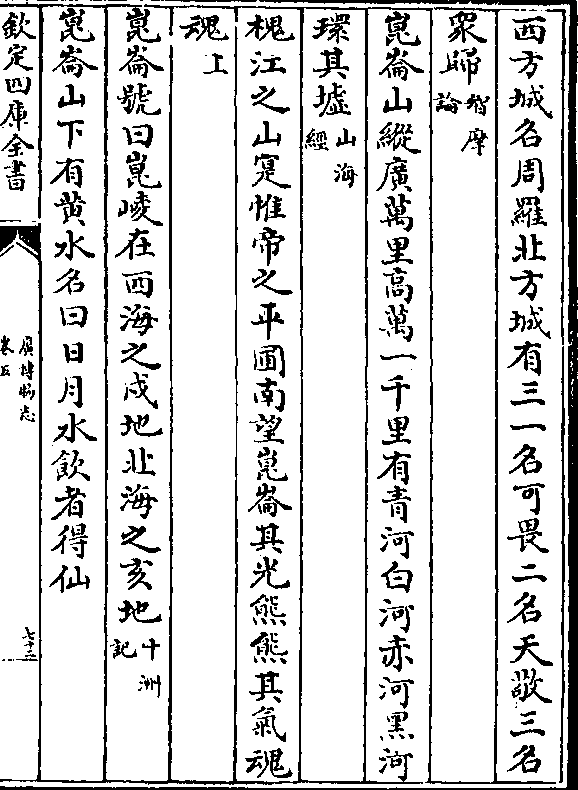 西方城名周羅北方城有三一名可畏二名天敬三名
衆歸智度論
崑崙山縱廣萬里高萬一千里有青河白河赤河黑河
環其墟山海經
槐江之山寔惟帝之平圃南望崑崙其光熊熊其氣魂
魂上
崑崙號曰崑崚在西海之戌地北海之亥地十洲記
崑崙山下有黄水名曰日月水飲者得仙
欽定四庫全書
廣博物志
卷五